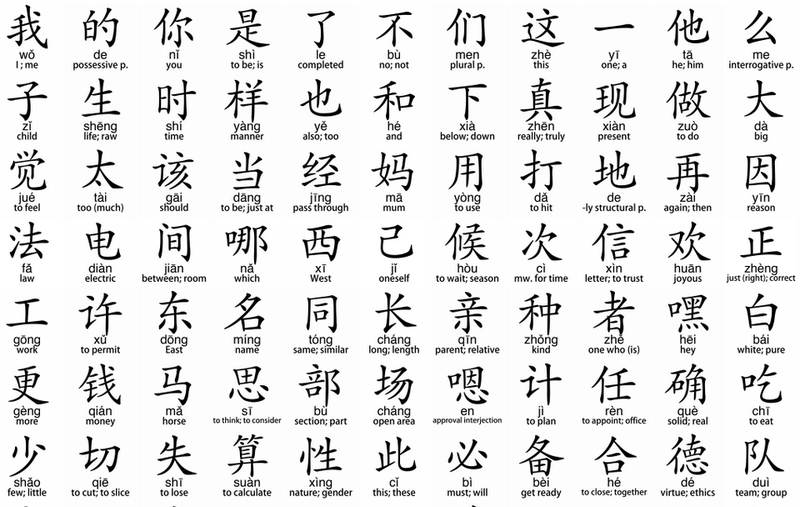 我 的 你 是 了 不 们 这 一 他 么
wǒ de nǐ shì le bù men zhè yī tā me
I ; me possessive p. you to be; is completed no; not plural p. this one; a he; him interrogative p.
子 生 时 样 也 和 下 真 现 做 大
zǐ shēng shí yàng yě hé xià zhēn xiàn zuò dà
child life; raw time manner also; too and below; down really; truly present to do big
觉 太 该 当 经 妈 用 打 地 再 因
jué tài gāi dāng jīng mā yòng dǎ de zài yīn
to feel too (much) should to be; just at pass through mum to use to hit -ly structural p. again; then reason
法 电 间 哪 西 己 候 次 信 欢 正
fǎ diàn jiān nǎ xī jǐ hòu cì xìn huān zhèng
law electric between; room which West oneself to wait; season mw. for time letter; to trust joyous just (right); correct
工 许 东 名 同 长 亲 种 者 嘿 白
gōng xǔ dōng míng tóng cháng qīn zhǒng zhě hēi bái
work to permit East name same; similar long; length parent; relative kind one who (is) hey white; pure
更 钱 马 思 部 场 嗯 计 任 确 吃
gèng qián mǎ sī bù cháng en jì rèn què chī
more money horse to think; to consider section; part open area approval interjection to plan to appoint; office solid; real to eat
少 切 失 算 性 此 必 备 合 德 队
shǎo qiē shī suàn xìng cǐ bì bèi hé dé duì
few; little to cut; to slice to lose to calculate nature; gender this; these must; will get ready to close; together virtue; ethics team; group